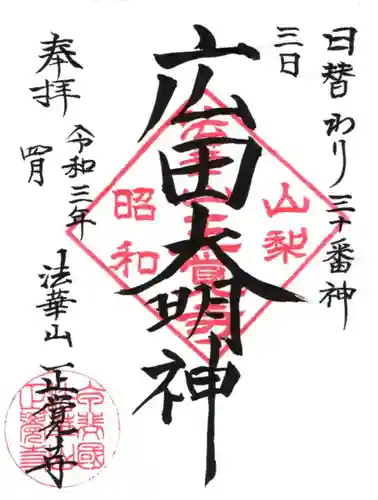 日替わり三十番神
三日
広田大明神
奉拝
令和三年
四月
法華山 正覚寺
山梨
昭和